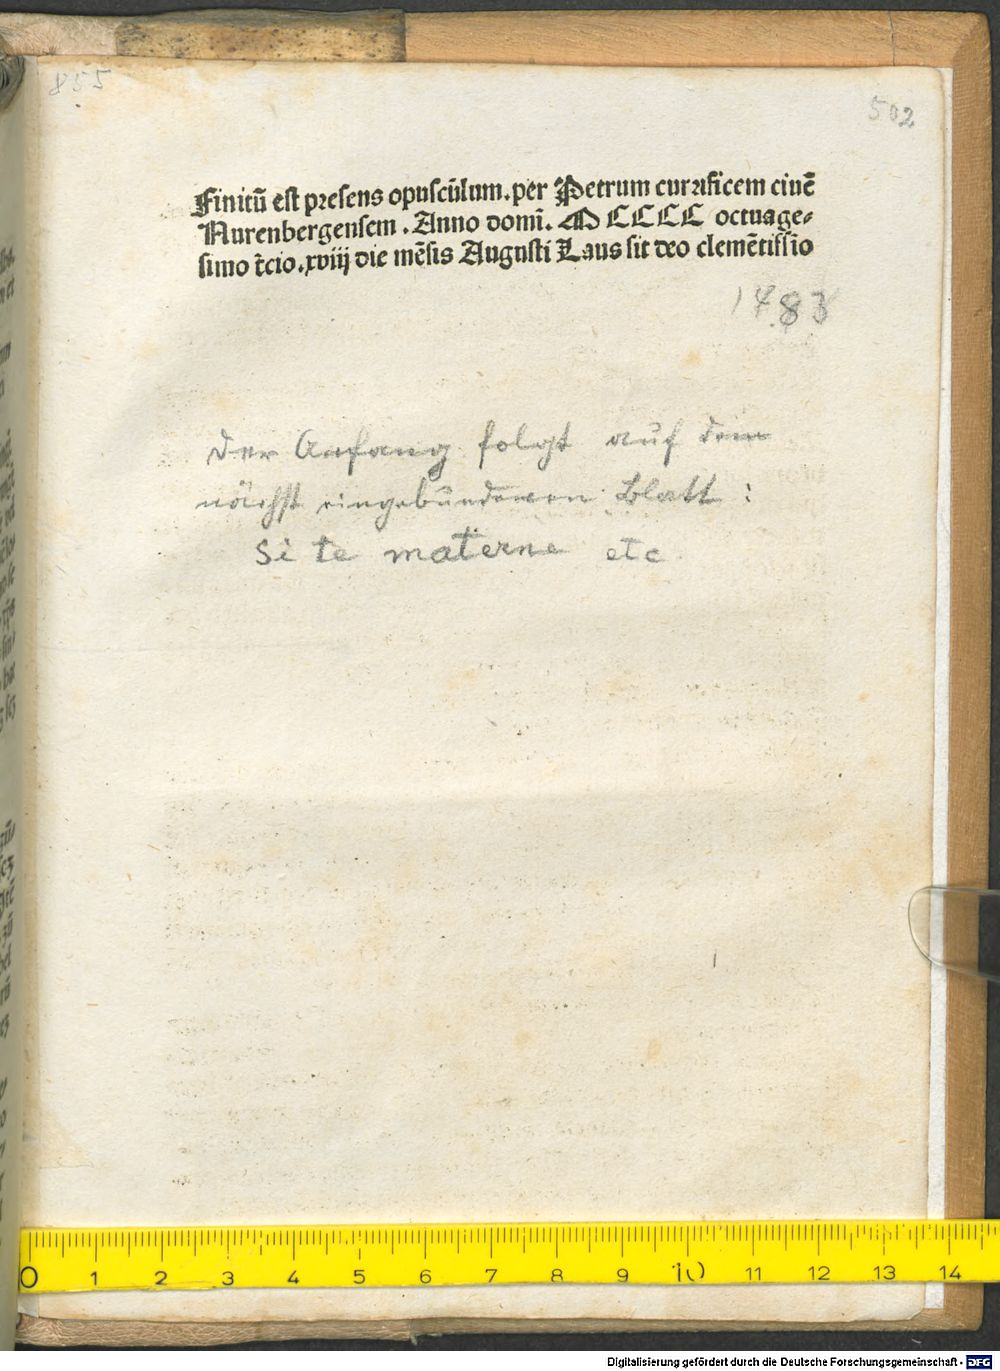 855
502
Finitū est presens opuscūlum. per Petrum currificem ciuē
Nurenbergensem . Anno domī. M CCCC octuage-
simo t̄cio. xviij die mēsis Augusti Laus sit deo clemētissīo
1483
Der Anfang folgt auf dem
nächst eingebundenen Blatt :
Si te materne etc.
0 1 2 3 4 5 6 7 8 9 10 11 12 13 14
Digitalisierung gefördert durch die Deutsche Forschungsgemeinschaft - DFG